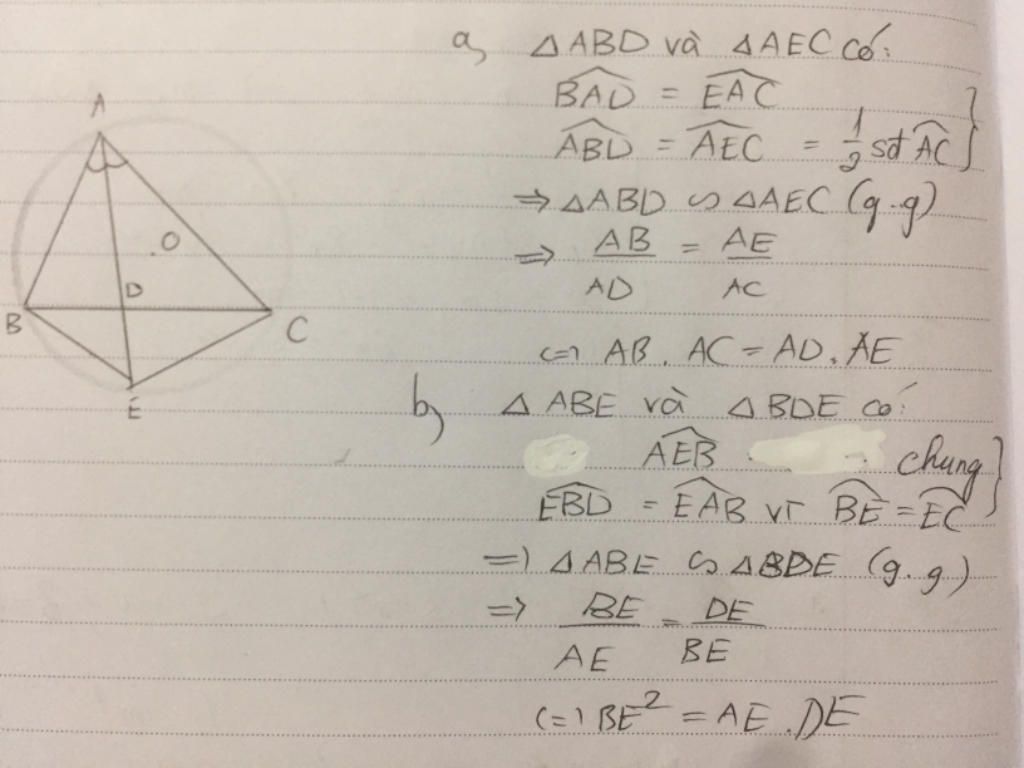 A
O
D
B
C
E
a, △ABD và △AEC có:
\widehat{BAD} = \widehat{EAC}
\widehat{ABD} = \widehat{AEC} = \frac{1}{2} sđ \widehat{AC} }
⇒ △ABD ∽ △AEC (g.g)
⇒ \frac{AB}{AD} = \frac{AE}{AC}
⇔ AB . AC = AD . AE
b, △ABE và △BDE có:
\widehat{AEB} chung
\widehat{EBD} = \widehat{EAB} vì \widehat{BE} = \widehat{EC} }
⇒ △ABE ∽ △BDE (g.g)
⇒ \frac{BE}{AE} = \frac{DE}{BE}
⇔ BE² = AE . DE